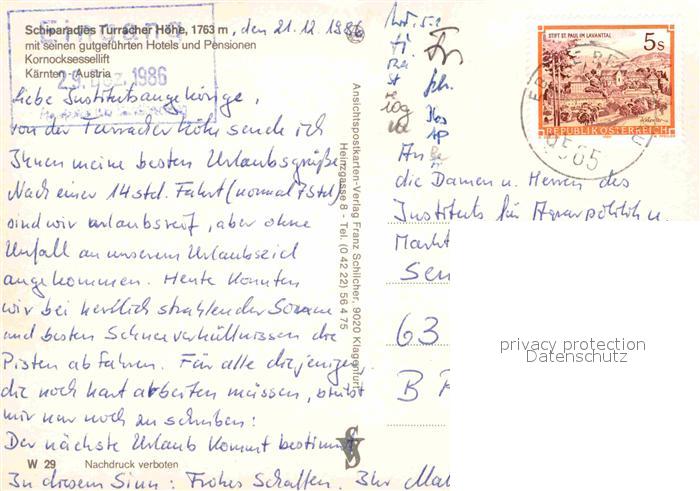 Schiparadies Turracher Höhe, 1763 m, den 21.12.1986
mit seinen gutgeführten Hotels und Pensionen
Kornocksessellift
Kärnten - Austria
Eingang
29. Dez. 1986
Liebe Institutsangehörige,
von der Turracher Höhe sende ich
Ihnen meine besten Urlaubsgrüße
Nach einer 14std. Fahrt (normal 7std)
sind wir urlaubsreif, aber ohne
Unfall an unserem Urlaubsziel
angekommen. Heute konnten
wir bei herrlich strahlender Sonne
und besten Schneeverhältnissen die
Pisten abfahren. Für alle diejenigen,
die noch hart arbeiten müssen, bleibt
mir nur noch zu schreiben:
Der nächste Urlaub kommt bestimmt
In diesem Sinn: Frohes Schaffen. Ihr
W 29 Nachdruck verboten
Ansichtspostkarten-Verlag Franz Schilcher, 9020 Klagenfurt
Heinzgasse 8 - Tel. (0 42 22) 56 4 75
STIFT ST. PAUL IM LAVANTTAL
5s
REPUBLIK ÖSTERREICH
9565
An
die Damen u. Herren des
Instituts für Agrarpolitik u.
Markt
63
privacy protection
Datenschutz